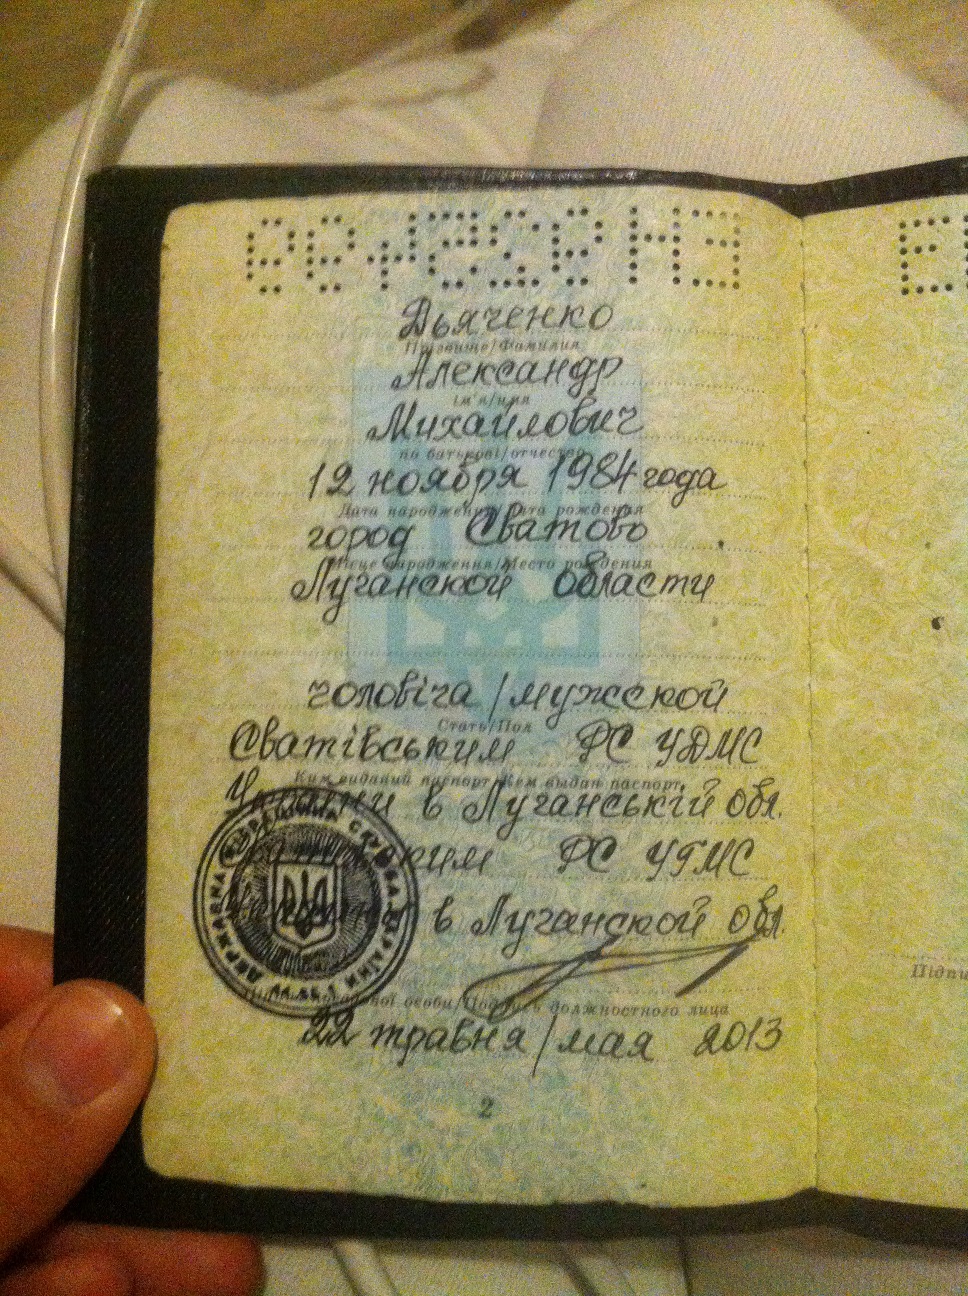 Дьяченко
Прізвище/Фамилия
Александр
ім'я/имя
Михайлович
по батькові/отчество
12 ноября 1984 года
Дата народження/Дата рождения
город Сватово
Місце народження/Место рождения
Луганской области
чоловіча/мужской
Стать/Пол
Сватівським РС УДМС
Ким виданий паспорт/Кем выдан паспорт
України в Луганській обл.
Сватовским РС УГМС
Украины в Луганской обл.
особи/Подпись должностного лица
22 травня/мая 2013
2
Підпи